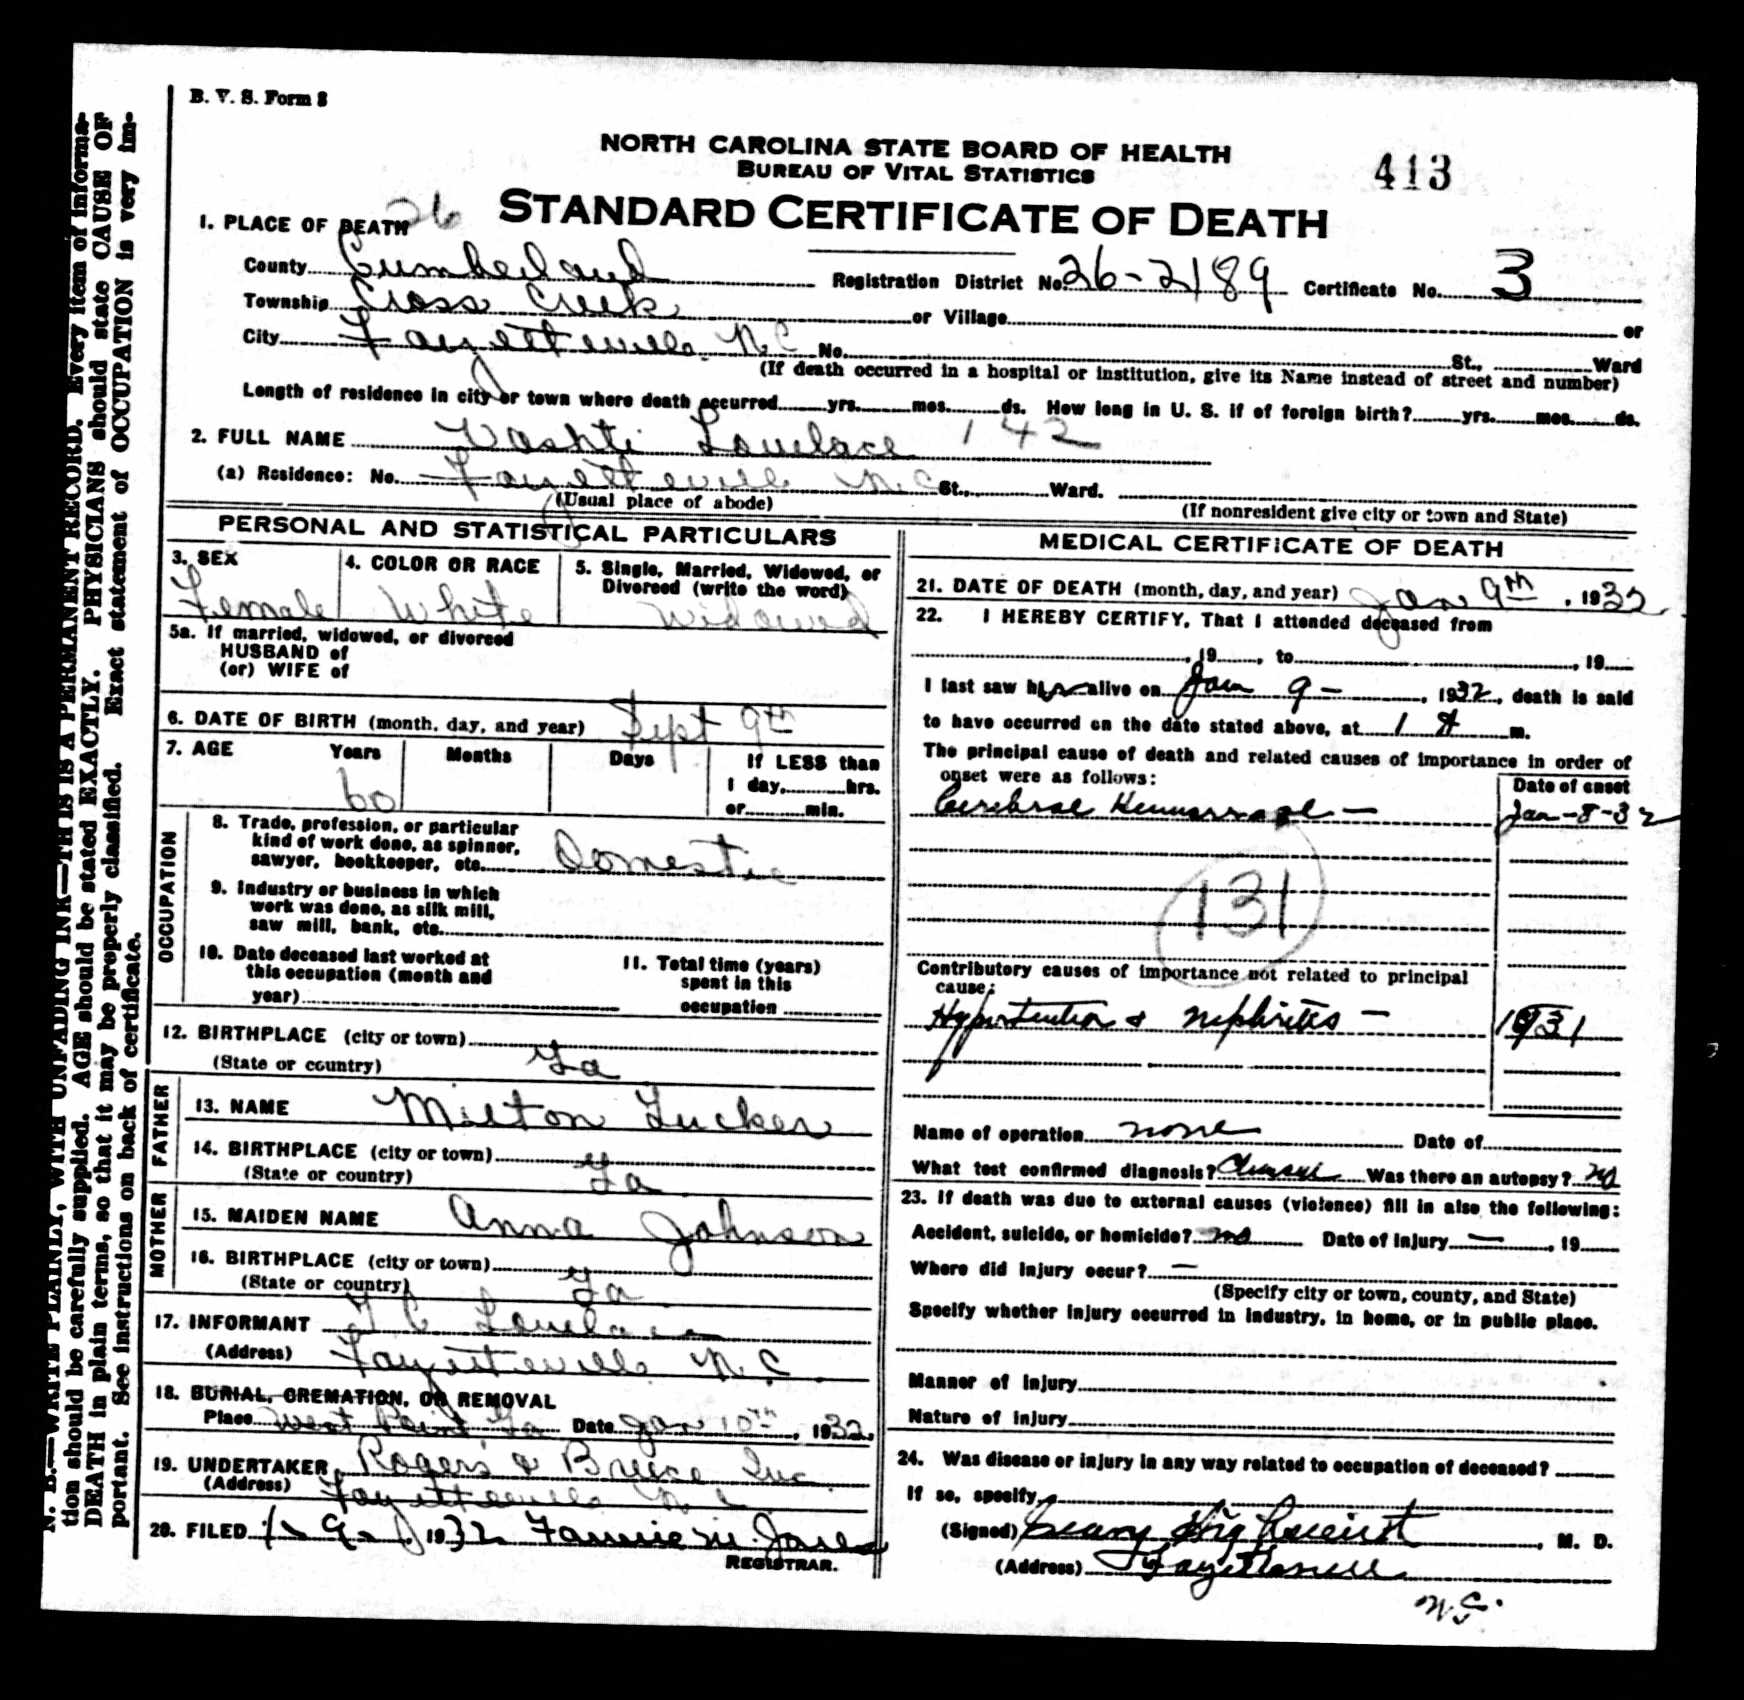 B. V. S. Form 8
NORTH CAROLINA STATE BOARD OF HEALTH
BUREAU OF VITAL STATISTICS
413
STANDARD CERTIFICATE OF DEATH
1. PLACE OF DEATH 26
County Cumberland Registration District No. 26-2189 Certificate No. 3
Township Cross Creek or Village or
City Fayetteville N.C No. St., Ward
(If death occurred in a hospital or institution, give its Name instead of street and number)
Length of residence in city or town where death occurred yrs. mos. ds. How long in U. S. if of foreign birth? yrs. mos. ds.
2. FULL NAME Vashti Lovelace 142
(a) Residence: No. Fayetteville N.C St., Ward.
(Usual place of abode) (If nonresident give city or town and State)
PERSONAL AND STATISTICAL PARTICULARS
3. SEX 4. COLOR OR RACE 5. Single, Married, Widowed, or
Divorced (write the word)
Female White Widowed
5a. If married, widowed, or divorced
HUSBAND of
(or) WIFE of
6. DATE OF BIRTH (month, day, and year) Sept 9th
7. AGE Years Months Days If LESS than
60 1 day, hrs.
or min.
OCCUPATION
8. Trade, profession, or particular
kind of work done, as spinner,
sawyer, bookkeeper, etc. Domestic
9. Industry or business in which
work was done, as silk mill,
saw mill, bank, etc.
10. Date deceased last worked at
this occupation (month and
year)
11. Total time (years)
spent in this
occupation
12. BIRTHPLACE (city or town)
(State or country) Ga
FATHER
13. NAME Milton Tucker
14. BIRTHPLACE (city or town)
(State or country) Ga
MOTHER
15. MAIDEN NAME Anna Johnson
16. BIRTHPLACE (city or town)
(State or country) Ga
17. INFORMANT Lovelace
(Address) Fayetteville N.C
18. BURIAL, CREMATION, OR REMOVAL
Place West Point Ga Date Jan 10th, 1932.
19. UNDERTAKER Rogers & Breece Inc
(Address) Fayetteville N C
20. FILED 1-9- 1932 Fannie M. Jones
REGISTRAR.
MEDICAL CERTIFICATE OF DEATH
21. DATE OF DEATH (month, day, and year) Jan 9th, 1932
22. I HEREBY CERTIFY, That I attended deceased from
, 19 , to , 19
I last saw her alive on Jan 9 - , 1932, death is said
to have occurred on the date stated above, at 1 A m.
The principal cause of death and related causes of importance in order of
onset were as follows: Date of onset
Cerebral Hemorrage - Jan-8-32
131
Contributory causes of importance not related to principal
cause:
Hypertention & nephritis - 1931
Name of operation none Date of
What test confirmed diagnosis? Clinical Was there an autopsy? no
23. If death was due to external causes (violence) fill in also the following:
Accident, suicide, or homicide? no Date of injury — , 19
Where did injury occur? —
(Specify city or town, county, and State)
Specify whether injury occurred in industry, in home, or in public place.
Manner of injury
Nature of injury
24. Was disease or injury in any way related to occupation of deceased?
If so, specify
(Signed) Highsmith, M. D.
(Address) Fayetteville
N.C.
N. B.—WRITE PLAINLY, WITH UNFADING INK—THIS IS A PERMANENT RECORD. Every item of informa-
tion should be carefully supplied. AGE should be stated EXACTLY. PHYSICIANS should state CAUSE OF
DEATH in plain terms, so that it may be properly classified. Exact statement of OCCUPATION is very im-
portant. See instructions on back of certificate.